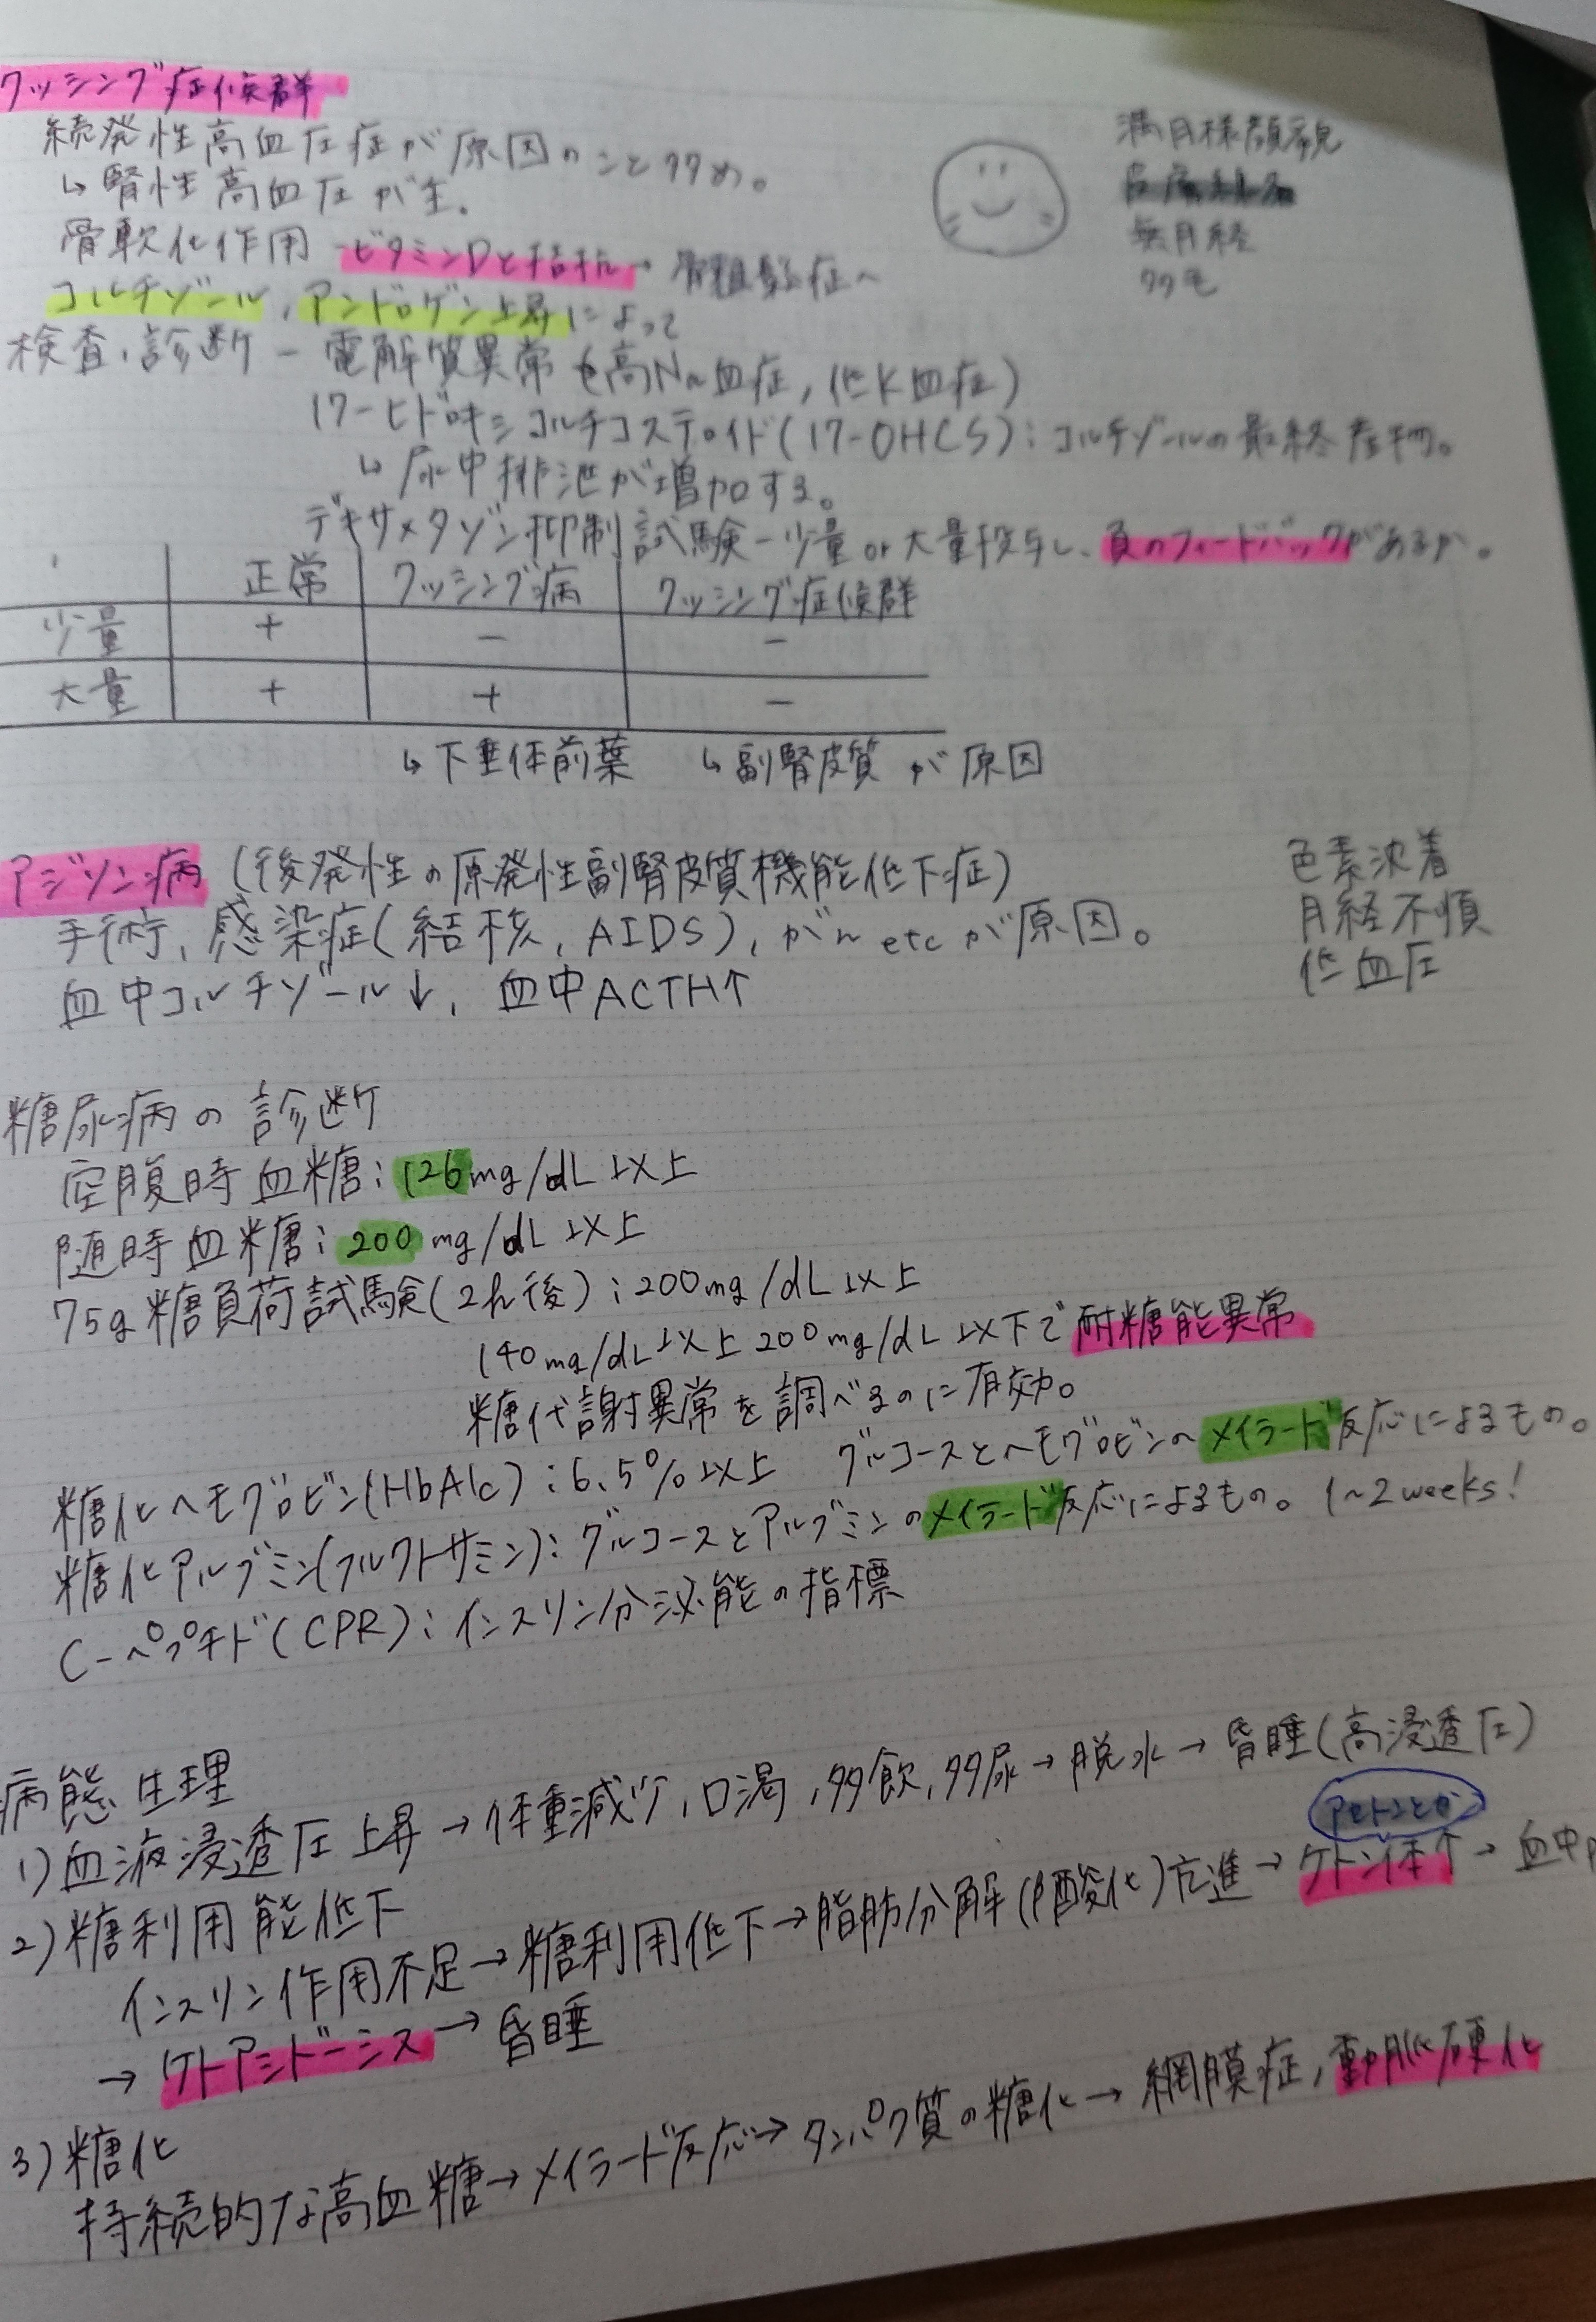 クッシング症候群
続発性高血圧症が原因のこと多め。
↳ 腎性高血圧が主.
骨軟化作用 - ビタミンDと拮抗→骨粗鬆症へ
コルチゾール, アンドロゲン上昇によって
満月様顔貌
無月経
多毛
検査・診断 − 電解質異常 (高Na血症, 低K血症)
17-ヒドロキシコルチコステロイド(17-OHCS): コルチゾールの最終産物。
↳ 尿中排泄が増加する。
デキサメタゾン抑制試験 − 少量 or 大量投与し、負のフィードバックがあるか。
正常 クッシング病 クッシング症候群
少量 + − −
大量 + + −
↳ 下垂体前葉 ↳ 副腎皮質 が原因
アジソン病 (後発性の原発性副腎皮質機能低下症)
手術, 感染症(結核, AIDS), がん etc が原因。
血中コルチゾール↓, 血中ACTH↑
色素沈着
月経不順
低血圧
糖尿病の診断
空腹時血糖: 126mg/dL以上
随時血糖: 200mg/dL以上
75g糖負荷試験(2h後): 200mg/dL以上
140mg/dL以上200mg/dL以下で耐糖能異常
糖代謝異常を調べるのに有効。
糖化ヘモグロビン(HbA1c): 6.5%以上 グルコースとヘモグロビンのメイラード反応によるもの。
糖化アルブミン(フルクトサミン): グルコースとアルブミンのメイラード反応によるもの。 1~2weeks!
C-ペプチド(CPR): インスリン分泌能の指標
病態生理
1) 血液浸透圧上昇→体重減少, 口渇, 多飲, 多尿→脱水→昏睡(高浸透圧)
2) 糖利用能低下
アセトンとか
インスリン作用不足→糖利用低下→脂肪分解(β酸化)亢進→ケトン体↑→血中
→ケトアシドーシス→昏睡
3) 糖化
持続的な高血糖→メイラード反応→タンパク質の糖化→網膜症, 動脈硬化